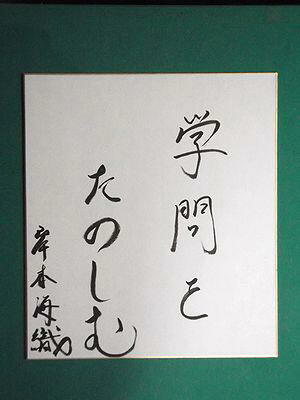 学問を
たのしむ
岸本海織